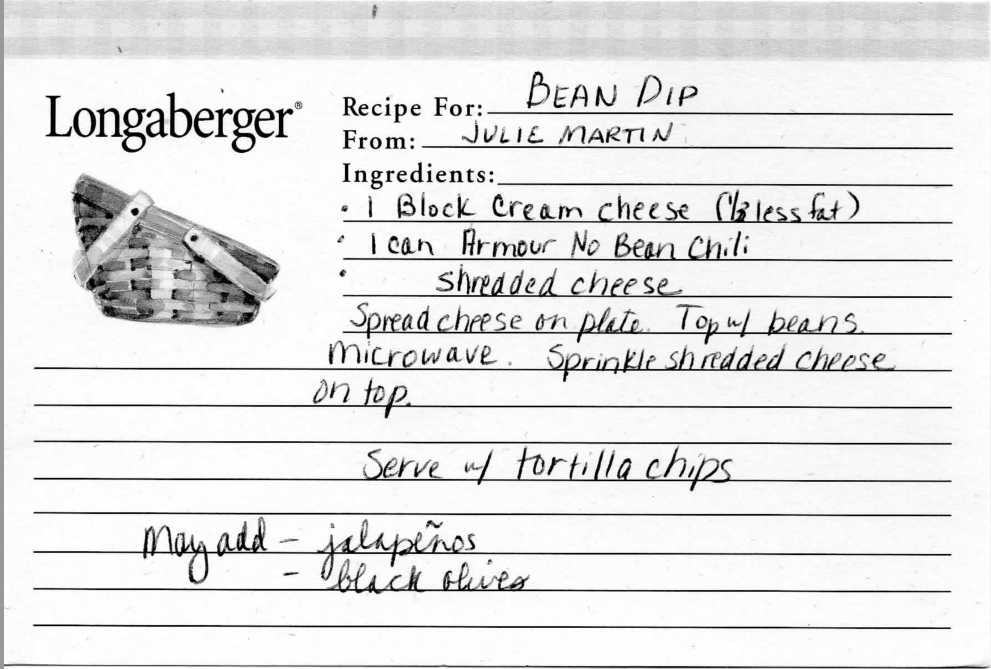 Longaberger®
Recipe For: BEAN DIP
From: JULIE MARTIN
Ingredients:
• 1 Block Cream cheese (1/3 less fat)
• 1 can Armour No Bean Chili
• shredded cheese
Spread cheese on plate. Top w/ beans.
Microwave. Sprinkle shredded cheese
on top.
Serve w/ tortilla chips
May add - jalapeños
- black olives